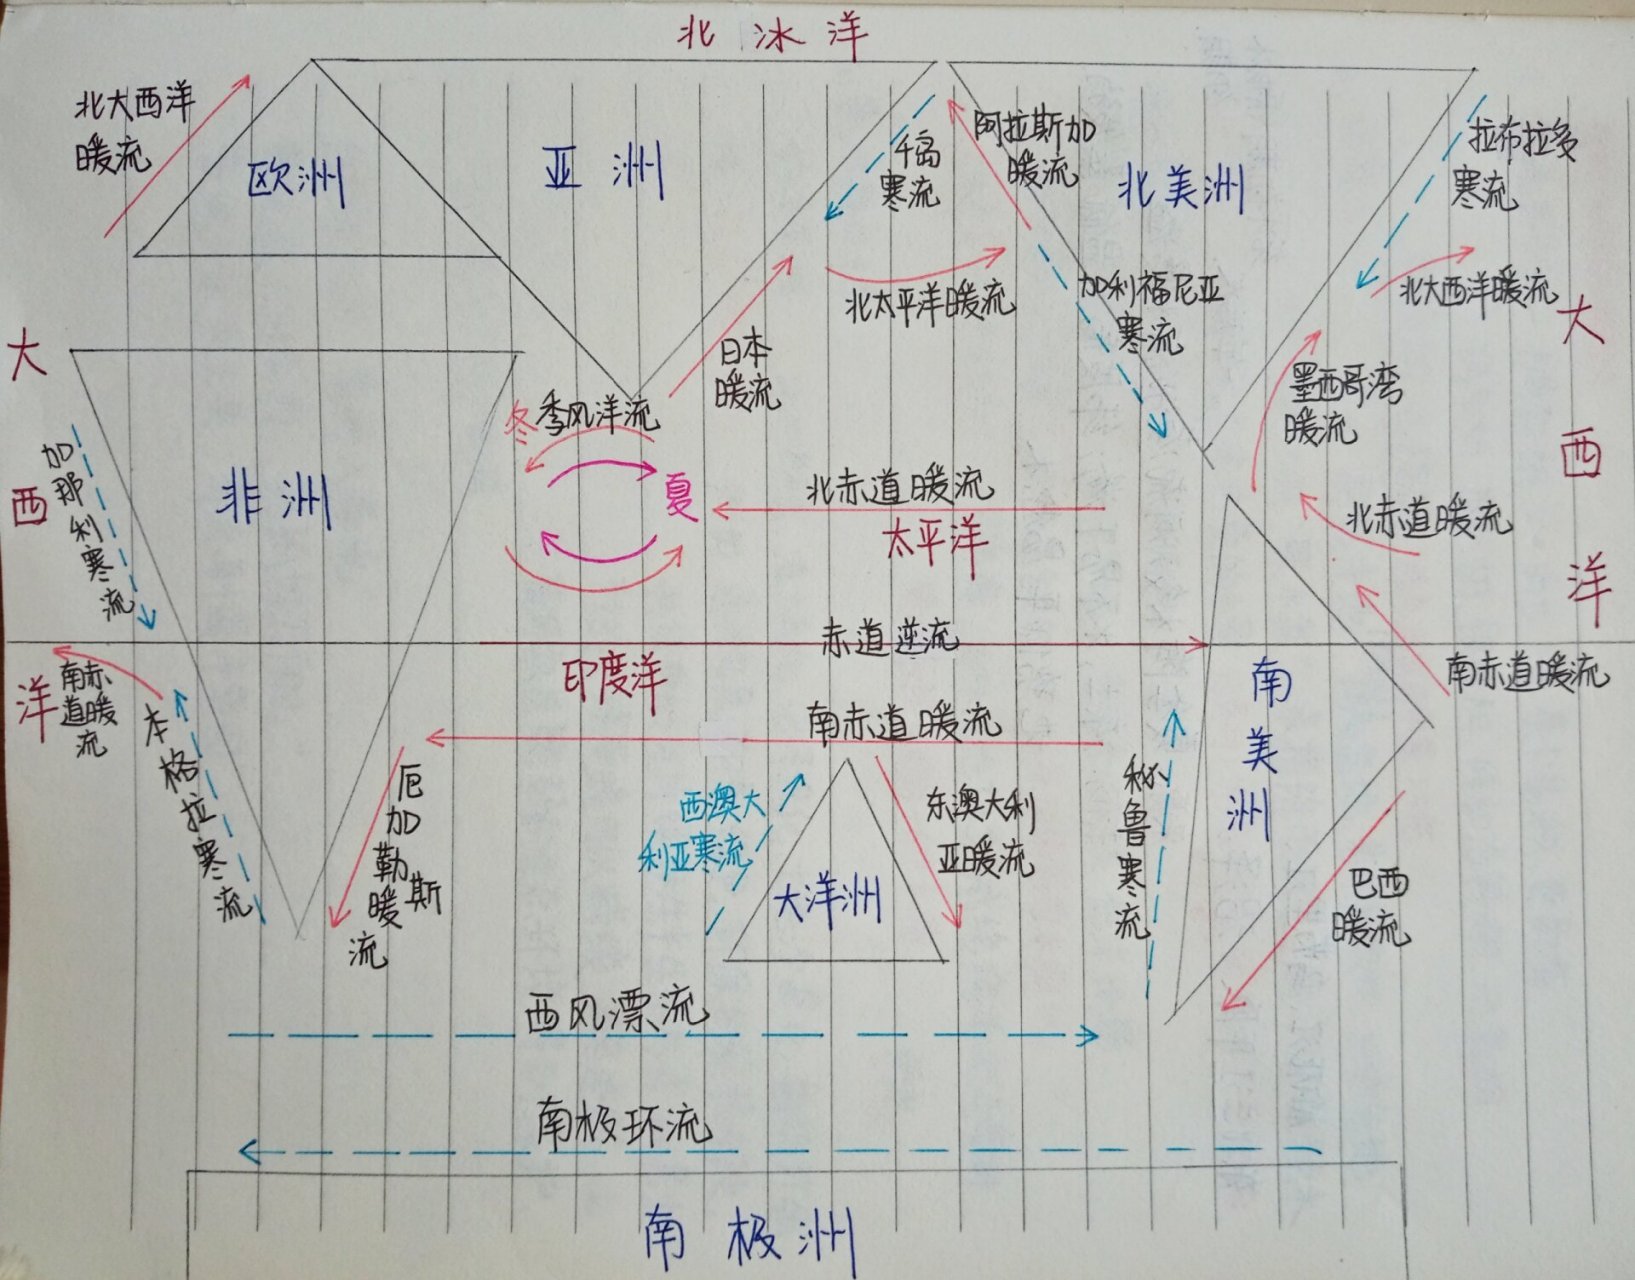 北冰洋
北大西洋
暖流
欧洲
亚洲
千岛
寒流
阿拉斯加
暖流
北美洲
拉布拉多
寒流
北太平洋暖流
加利福尼亚
寒流
北大西洋暖流
大
西
洋
日本
暖流
墨西哥湾
暖流
大
西
洋
加那利寒流
非洲
冬
季风洋流
夏
北赤道暖流
太平洋
北赤道暖流
赤道逆流
印度洋
南赤
道暖
流
本格拉寒流
南赤道暖流
南赤道暖流
南美洲
厄加勒斯
暖流
西澳大
利亚寒流
东澳大利
亚暖流
大洋洲
秘鲁寒流
巴西
暖流
西风漂流
南极环流
南极洲